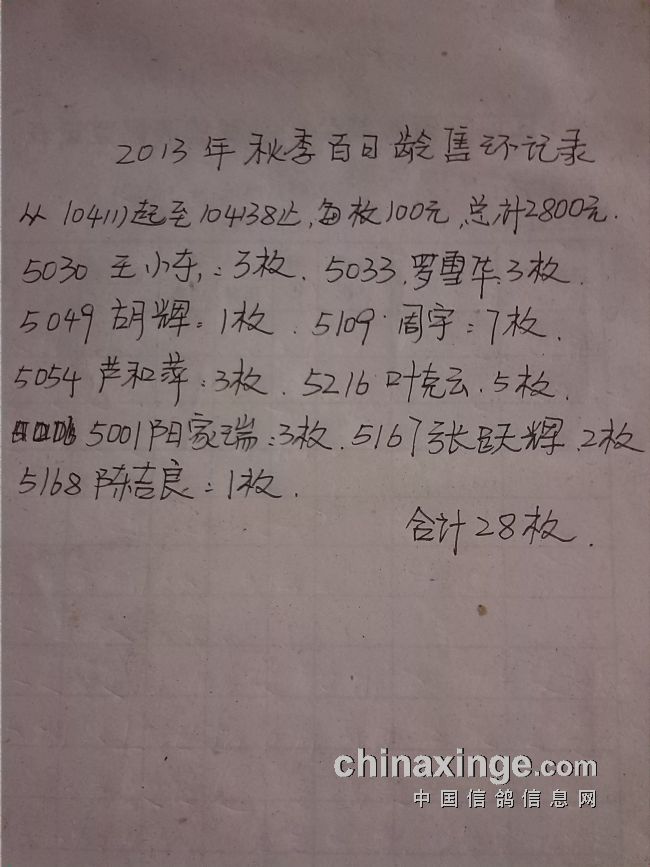 2013年秋季百日龄售环记录
从104111起至104138止,每枚100元,总计2800元.
5030 王小东,:3枚. 5033.罗雪华.3枚.
5049 胡辉:1枚. 5109 周宇:7枚.
5054 芦和萍:3枚. 5216 叶克云.5枚.
5001阳家瑞:3枚. 5167张跃辉.2枚
5168 陈吉良:1枚.
合计28枚.
chinaxinge.com
中国信鸽信息网